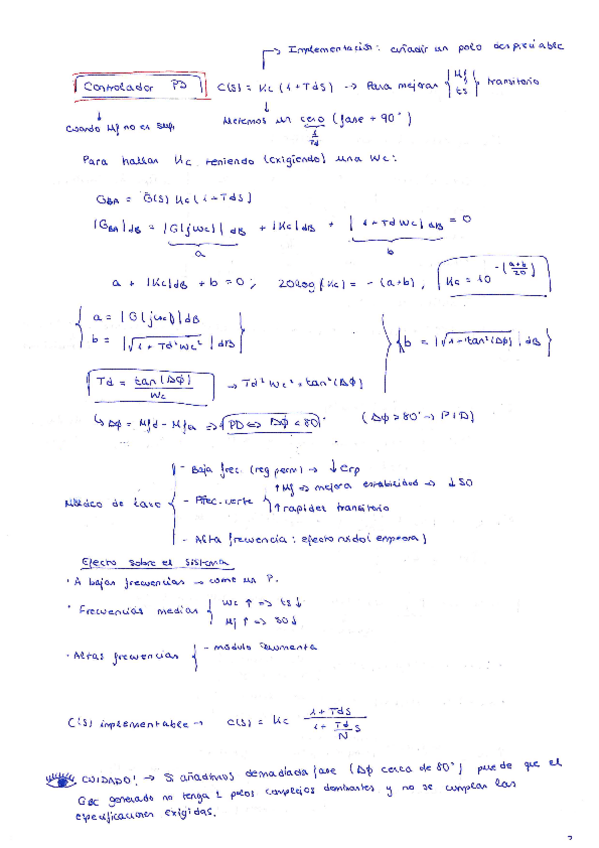 Implementación: añadir un polo despreciable
Controlador PD C(S) = Kc (1 + TdS) → Para mejorar { Mf, ts } transitorio
Cuando Mf no es suf.
Metemos un cero (fase + 90°)
1/Td
Para hallar Kc teniendo (exigiendo) una Wc:
GBA = G(S) Kc (1 + TdS)
|GBA|dB = |G(jwc)|dB + |Kc|dB + | 1 + TdWc |dB = 0
a b
a + |Kc|dB + b = 0 ; 20log(Kc) = -(a+b), Kc = 10^-((a+b)/20)
{ a = |G(jwc)|dB
b = |√1 + Td²Wc²|dB }
{ b = |√1 - tan²(Δφ)|dB }
Td = tan(Δφ)/Wc → Td²Wc² = tan²(Δφ)
↳ Δφ = Mfd - Mfa ⇒ PD ⇔ Δφ < 80° (Δφ > 80° → PID)
- Baja frec. (reg perm) → ↓ erp
Módulo de lazo
- Frec. corte { ↑ Mf ⇒ mejora estabilidad → ↓ SO
↑ rapidez transitorio
- Alta frecuencia: efecto ruido (empeora)
Efecto sobre el sistema
· A bajas frecuencias → como un P.
· Frecuencias medias { Wc ↑ ⇒ ts ↓
Mf ↑ ⇒ SO ↓
· Altas frecuencias { - módulo aumenta
C(S) implementable → C(S) = Kc (1 + TdS)/(1 + Td/N S)
CUIDADO! → Si añadimos demasiada fase (Δφ cerca de 80°) puede que el
GBC generado no tenga 2 polos complejos dominantes y no se cumplan las
especificaciones exigidas.